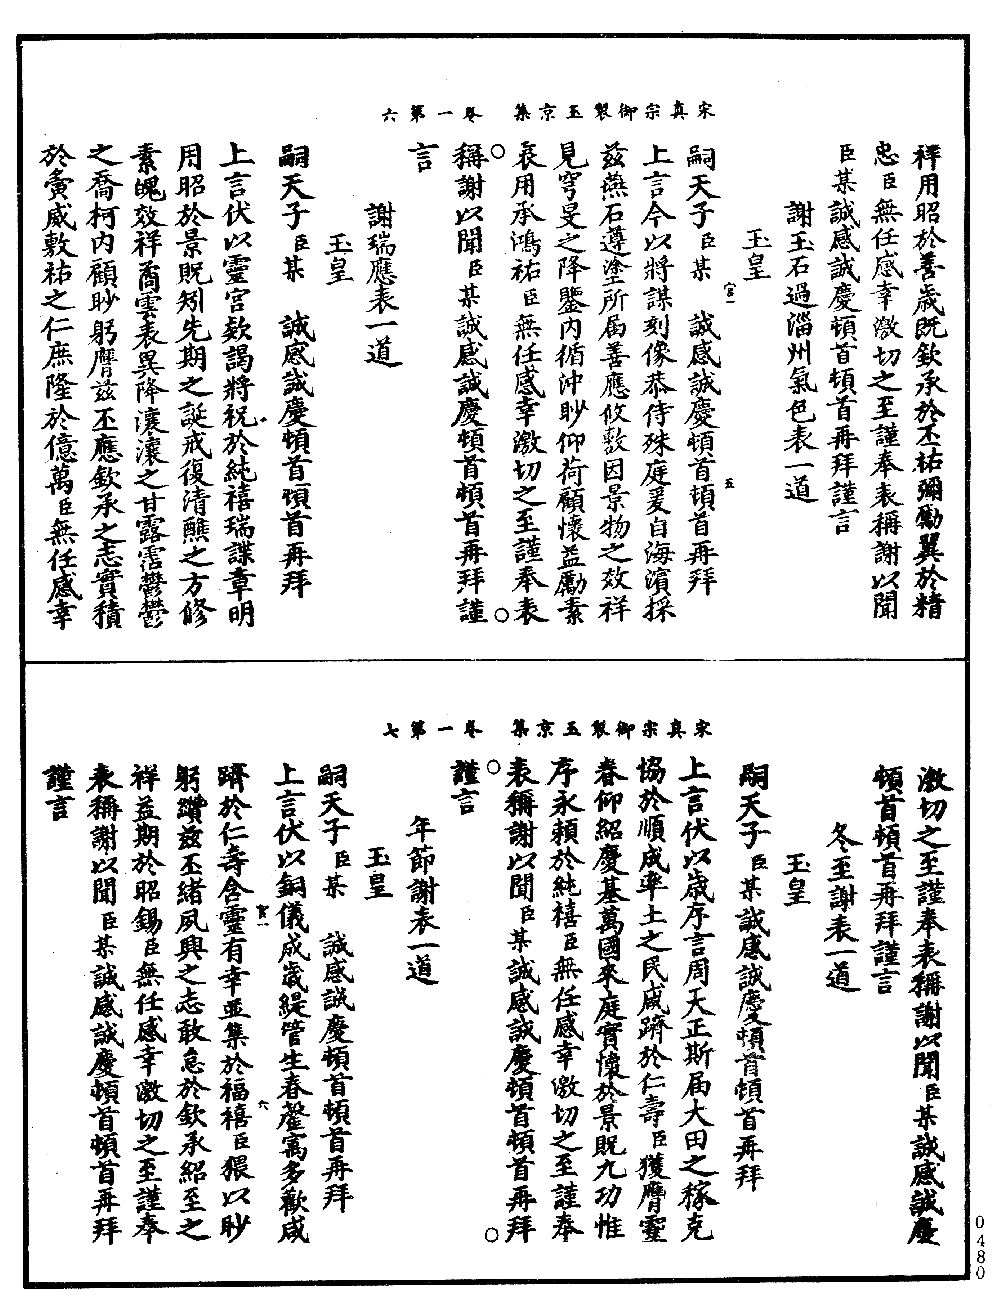 宋真宗御製玉京集 卷一第六
祥用昭於善歲既欽承於丕祐彌勵翼於精
忠臣無任感幸激切之至謹奉表稱謝以聞
臣某誠感誠慶頓首頓首再拜謹言
謝玉石過淄州氣色表一道
玉皇
嗣天子臣某 誠感誠慶頓首頓首再拜
上言今以將謀刻像恭侍殊庭爰自海濱採
茲燕石遵塗所届善應攸敷因景物之效祥
見穹旻之降鑒内循沖眇仰荷顧懷益勵素
衷用承鴻祐臣無任感幸激切之至謹奉表
稱謝以聞臣某誠感誠慶頓首頓首再拜謹
言
謝瑞應表一道
玉皇
嗣天子臣某 誠感誠慶頓首頓首再拜
上言伏以靈宫欵謁將祝於純禧瑞諜章明
用昭於景貺矧先期之誕戒復清醮之方修
素魄效祥矞雲表異降瀼瀼之甘露霑鬱鬱
之喬柯内顧眇躬膺茲丕應欽承之志實積
於夤威敷祐之仁庶隆於億萬臣無任感幸
宫一
五
宋真宗御製玉京集 卷一第七
激切之至謹奉表稱謝以聞臣某誠感誠慶
頓首頓首再拜謹言
冬至謝表一道
玉皇
嗣天子臣某誠感誠慶頓首頓首再拜
上言伏以歲序言周天正斯届大田之稼克
協於順成率土之民咸躋於仁壽臣獲膺靈
眷仰紹慶基萬國來庭實懷於景貺九功惟
序永賴於純禧臣無任感幸激切之至謹奉
表稱謝以聞臣某誠感誠慶頓首頓首再拜
謹言
年節謝表一道
玉皇
嗣天子臣某 誠感誠慶頓首頓首再拜
上言伏以銅儀成歲緹管生春罄寓多歡咸
躋於仁壽含靈有幸並集於福禧臣猥以眇
躬躓茲丕緒夙興之志敢怠於欽承紹至之
祥益期於昭錫臣無任感幸激切之至謹奉
表稱謝以聞臣某誠感誠慶頓首頓首再拜
謹言
宫一
六
0480